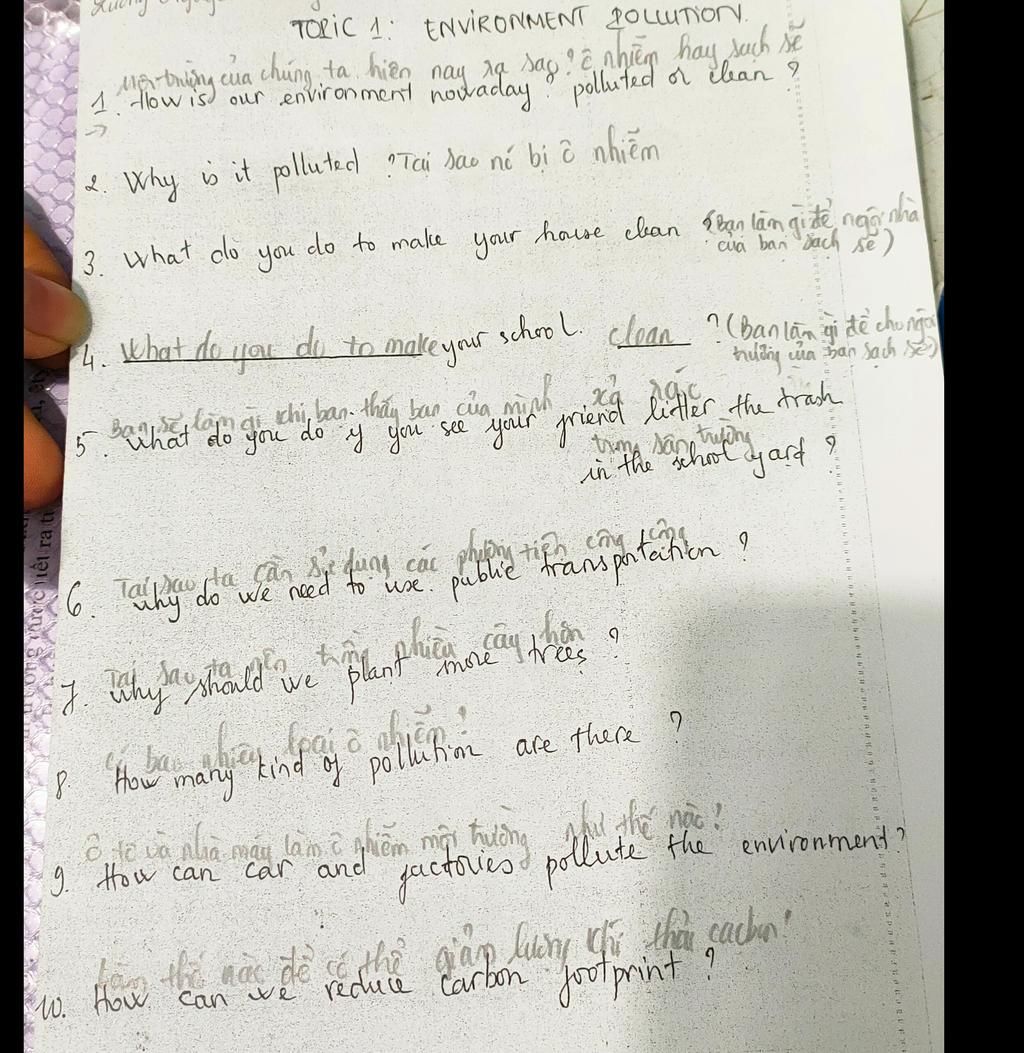 TOPIC 1: ENVIRONMENT POLLUTION.
Môi trường của chúng ta hiện nay ra sao? ô nhiễm hay sạch sẽ
1. How is our environment nowaday? polluted or clean?
→
2. Why is it polluted? Tại sao nó bị ô nhiễm
3. What do you do to make your house clean? (Bạn làm gì để ngôi nhà
của bạn sạch sẽ)
4. What do you do to make your school. clean? (Bạn làm gì để cho ngôi
trường của bạn sạch sẽ)
Bạn sẽ làm gì khi bạn thấy bạn của mình xả rác
5. What do you do if you see your friend litter the trash
trong sân trường
in the school yard?
Tại sao ta cần sử dụng các phương tiện công cộng
6. Why do we need to use. public transportation?
Tại sao ta nên trồng nhiều cây hơn
7. Why should we plant more trees?
Có bao nhiêu loại ô nhiễm?
8. How many kind of pollution are there?
Ô tô và nhà máy làm ô nhiễm môi trường như thế nào?
9. How can car and factories pollute the environment?
Làm thế nào để có thể giảm lượng khí thải cacbon?
10. How can we reduce carbon footprint?